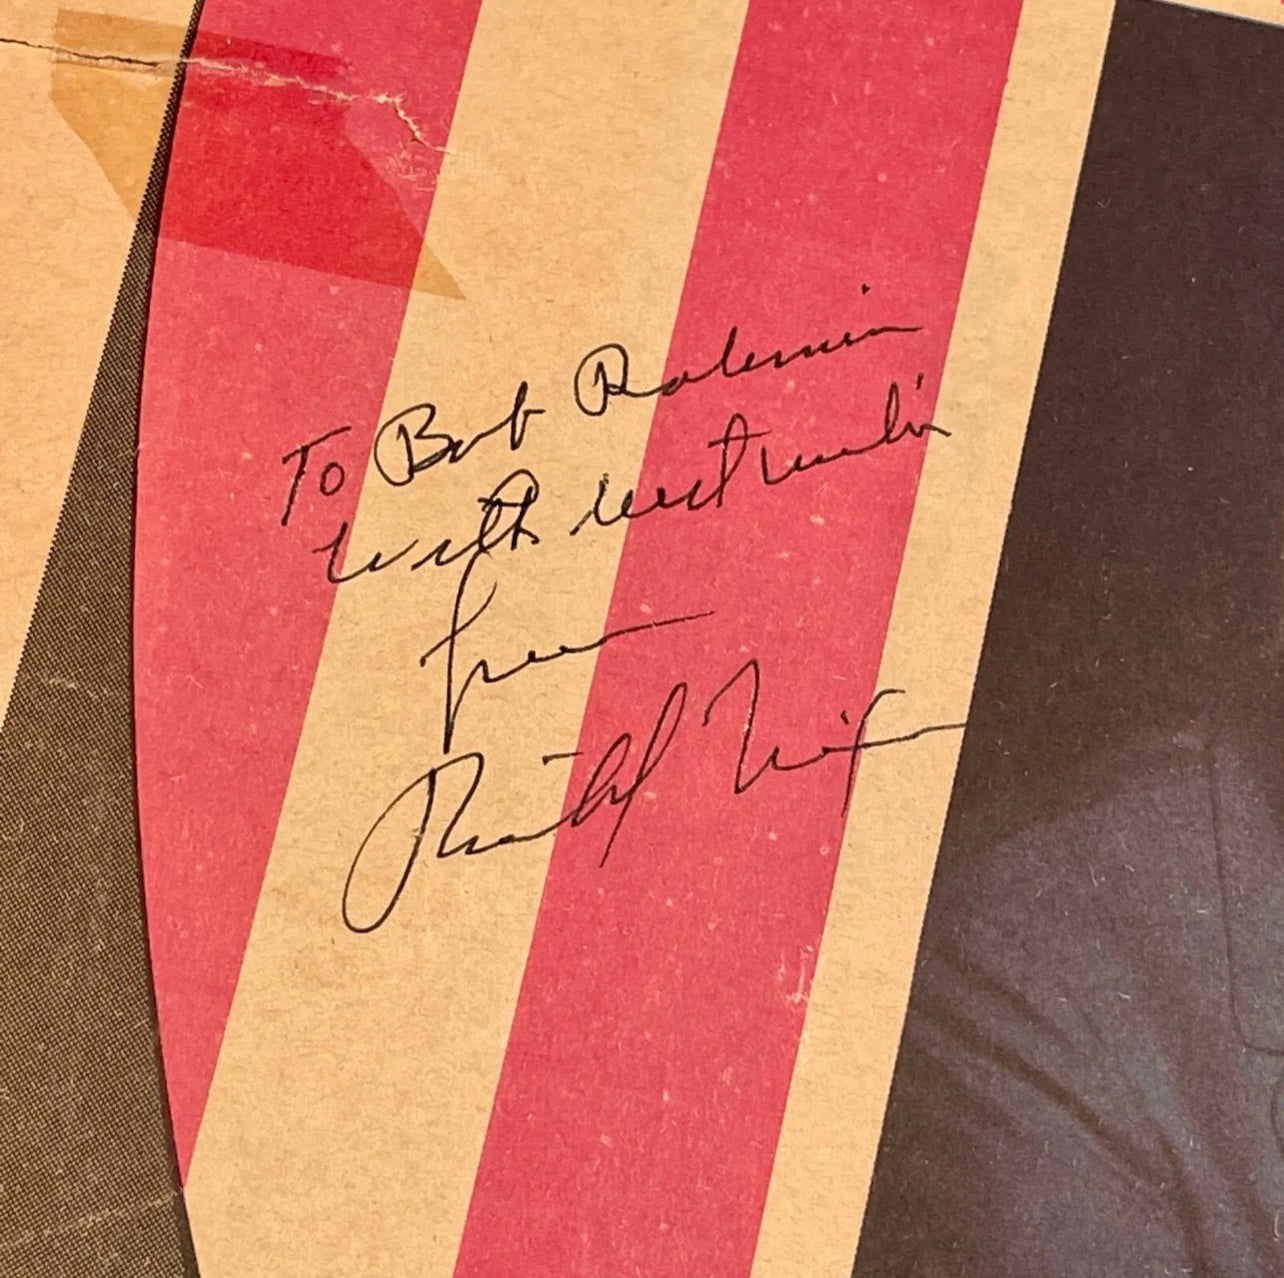 To Bob
with best wishes
from
Richard Nixon